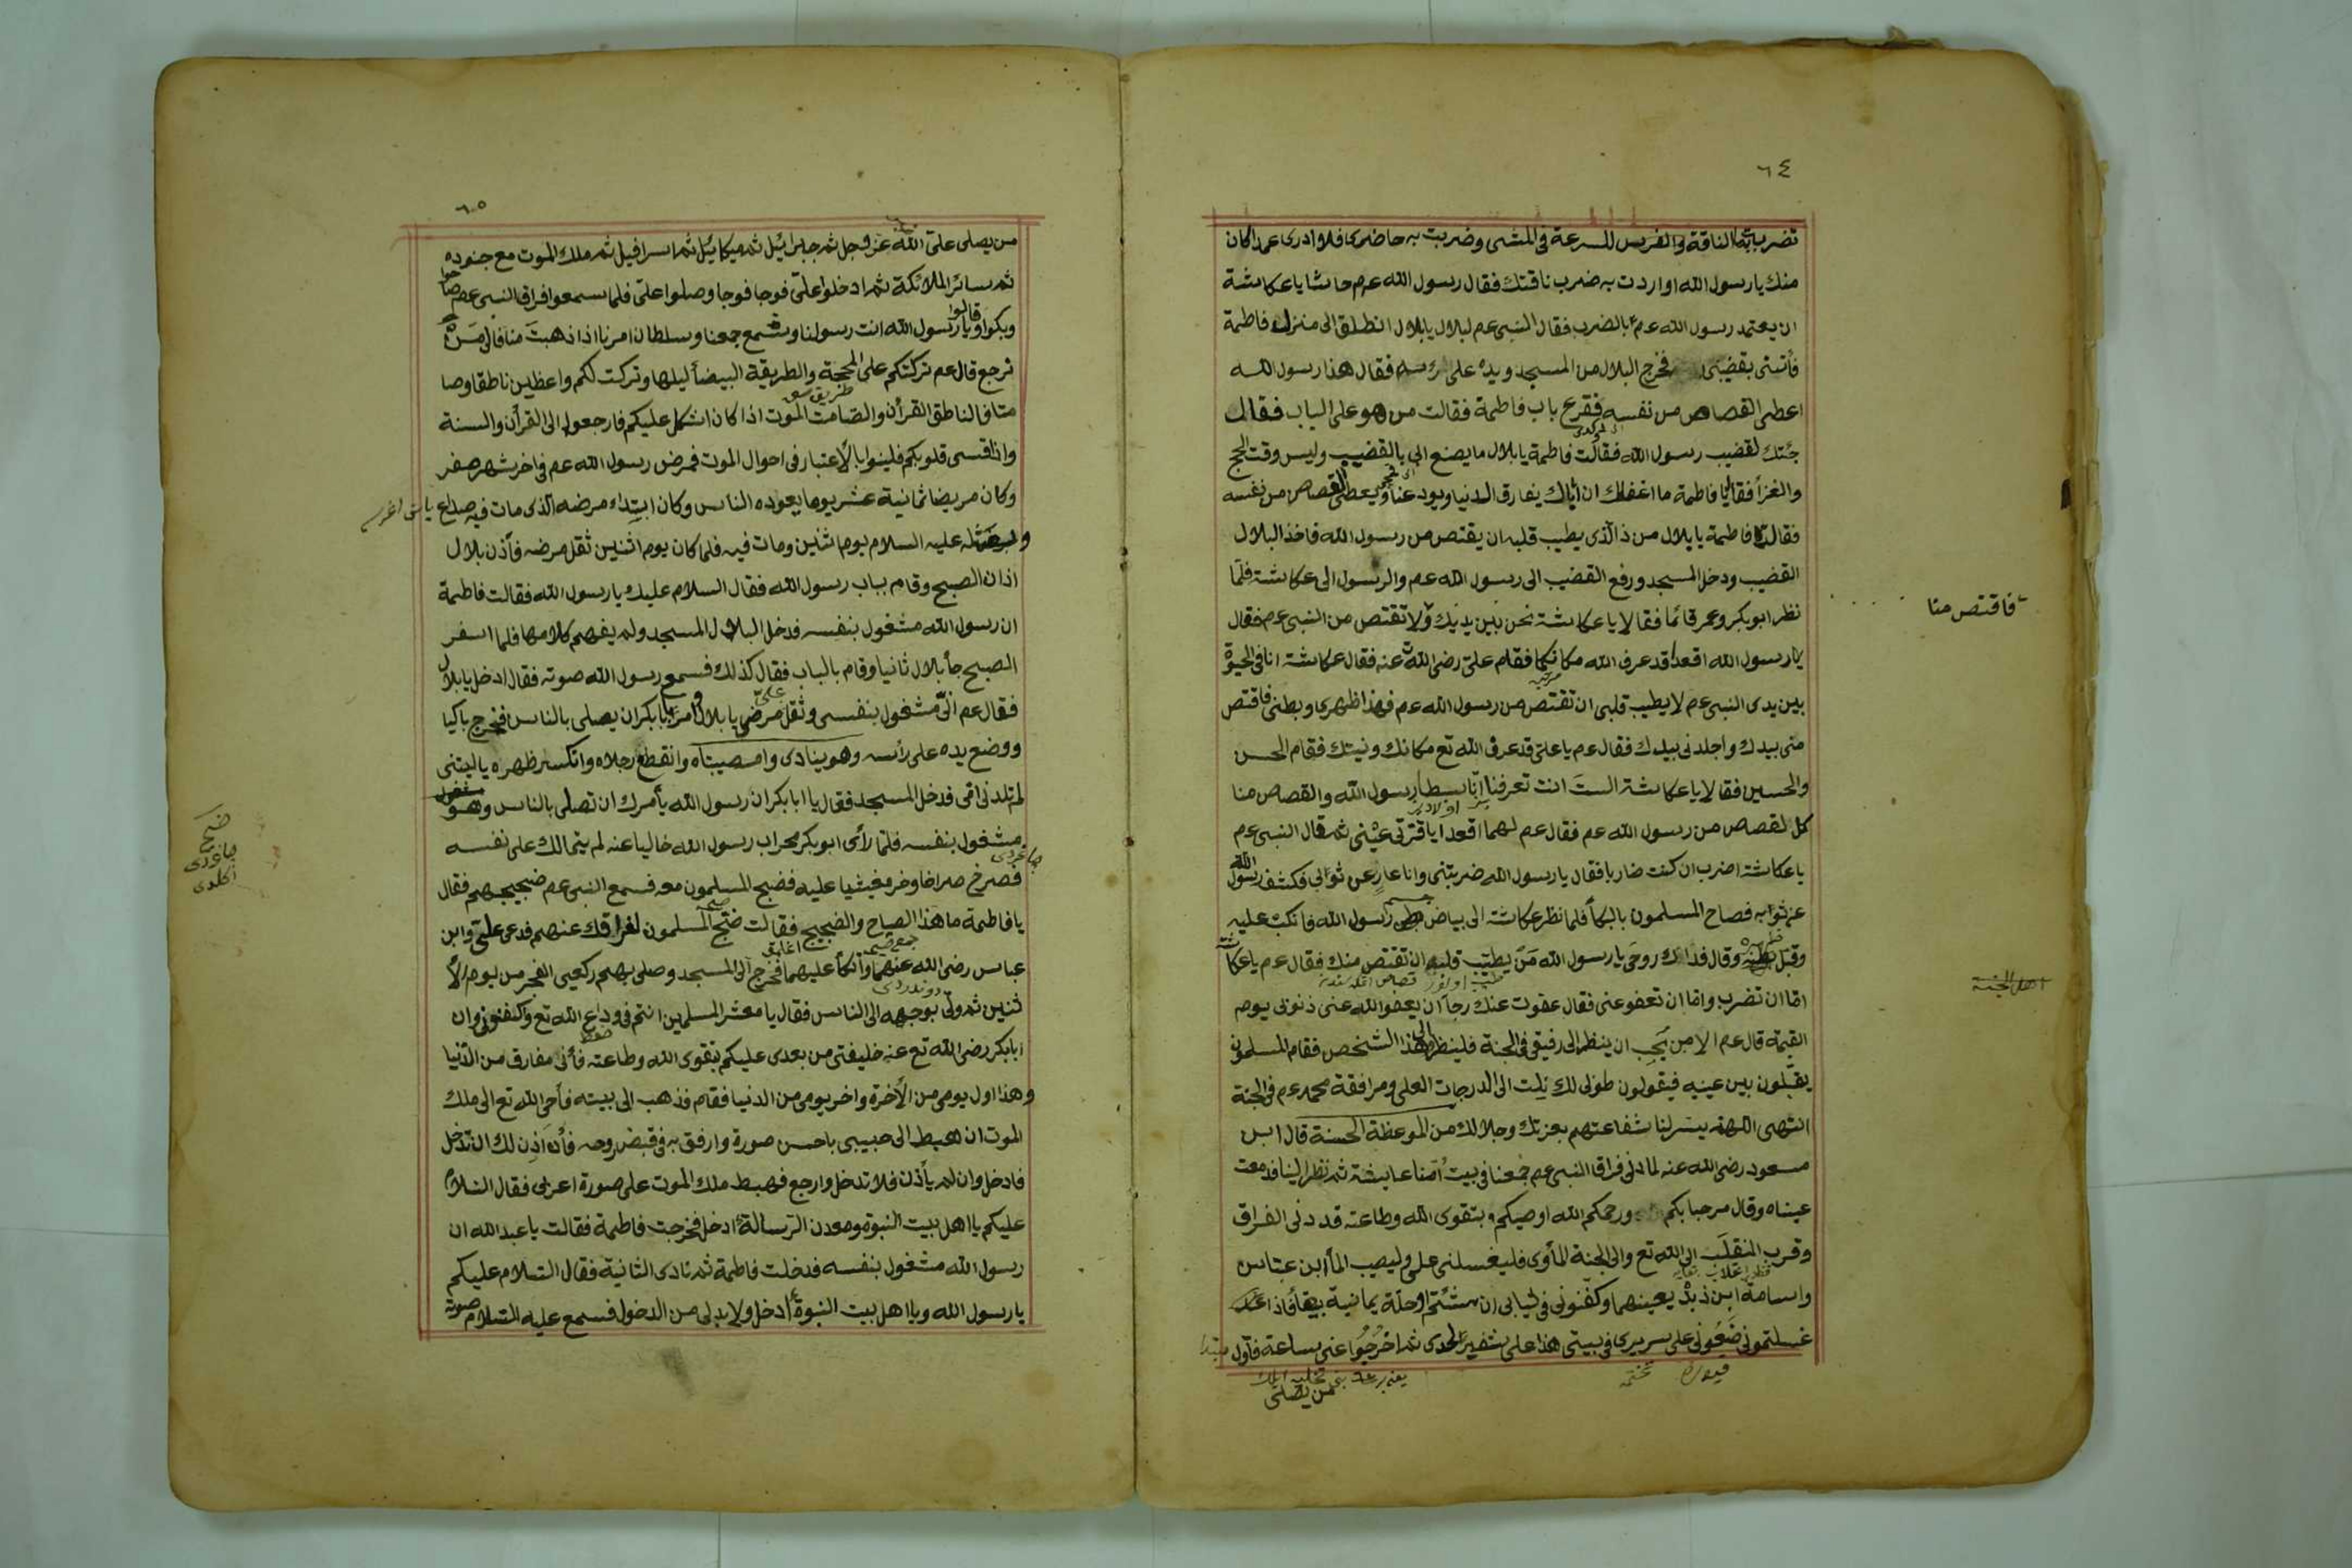 ٦٤
تضرب به الناقة والفرس للسرعة فى المشى وضربت به حاضرى فلا ادرى عمدا كان
منك يا رسول الله او اردت به ضرب ناقتك فقال رسول الله عم حاشا يا عكاشة
ان يعتمد رسول الله عم بالضرب فقال النبى عم لبلال يا بلال انطلق الى منزل فاطمة
فأتنى بقضيبى فخرج البلال من المسجد ويده على رأسه فقال هذا رسول الله
اعطى القصاص من نفسه فقرع باب فاطمة فقالت من هو على الباب فقال
جئتك لقضيب رسول الله فقالت فاطمة يا بلال ما يصنع ابى بالقضيب وليس وقت الحج
والغزأ فقال يا فاطمة ما اغفلك ان اباك يفارق الدنيا ويودعنا ويعطى القصاص من نفسه
فقالت فاطمة يا بلال من ذا الذى يطيب قلبه ان يقتص من رسول الله فاخذ البلال
القضيب ودخل المسجد ورفع القضيب الى رسول الله عم والرسول الى عكاشة فلما
نظر ابو بكر وعمر قائما فقالا يا عكاشة نحن بين يديك ولا تقتص من النبى عم فقال
فاقتص منا
يا رسول الله اقعدا قد عرف الله مكانكما فقام على رضى الله عنه فقال عكاشة انا فى الحيوة
بين يدى النبى عم لا يطيب قلبى ان تقتص من رسول الله عم فهذا ظهرى وبطنى فاقتص
منى بيدك واجلدنى بيدك فقال عم يا على قد عرف الله تع مكانك ونيتك فقام الحسن
والحسين فقالا يا عكاشة الست انت تعرفنا انا سبطا رسول الله والقصاص منا
كالقصاص من رسول الله عم فقال عم لهما اقعدا يا قرتى عينى ثم قال النبى عم
يا عكاشة اضرب ان كنت ضاربا فقال يا رسول الله ضربتنى وانا عار عن ثوابى فكشف رسول الله
عن ثوابه فصاح المسلمون بالبكأ فلما نظر عكاشة الى بياض رسول الله فانكب عليه
وقبل وقال فداك روحى يا رسول الله من يطيب قلبه ان تقتص منك فقال عم يا عكاشة
اما ان تضرب واما ان تعفو عنى فقال عفوت عنك رجأ ان يعفو الله عنى ذنوبى يوم
اهل الجنة
القيمة قال عم الا من يحب ان ينظر الى رفيقى فى الجنة فلينظر الى هذا الشخص فقام المسلمون
يقبلون بين عينيه فيقولون طوبى لك نلت الى الدرجات العلى ومرافقة محمد عم فى الجنة
انتهى اللهم يسر لنا شفاعتهم بعزتك وجلالك من الموعظة الحسنة قال ابن
مسعود رضى الله عنه لما دنى فراق النبى عم جمعنا فى بيت امنا عايشة ثم نظر الينا فدمعت
عيناه وقال مرحبا بكم ورحمكم الله اوصيكم بتقوى الله وطاعته قد دنى الفراق
وقرب المنقلب الى الله تع والى الجنة المأوى فليغسلنى على وليصب المأ ابن عباس
واسامة ابن زيد يعينهما وكفنونى فى ثيابى ان شئتم او حلة يمانية بيضأ فاذا
غسلتمونى ضعونى على سريرى فى بيتى هذا على شفير لحدى ثم اخرجوا عنى ساعة فاول
من يصلى
٦٥
من يصلى على الله عز وجل ثم جبرائيل ثم ميكائيل ثم اسرافيل ثم ملك الموت مع جنوده
ثم سائر الملائكة ثم ادخلوا على فوجا فوجا وصلوا على فلما سمعوا فراق النبى عم صاحوا
وبكوا وقالوا يا رسول الله انت رسولنا وشمع جمعنا وسلطان امرنا اذا ذهبت منا فالى من
نرجع قال عم تركتكم على المحجة والطريقة البيضأ ليلها وتركت لكم واعظين ناطقا وصا
متا فالناطق القرأن والصامت الموت اذا كان اشكل عليكم فارجعوا الى القرأن والسنة
واذا قسى قلوبكم فلينوا بالأعتبار فى احوال الموت فمرض رسول الله عم فى اخر شهر صفر
وكان مريضا ثمانية عشر يوما يعوده الناس وكان ابتداء مرضه الذى مات فيه صداع
عليه السلام يوم اثنين ومات فيه فلما كان يوم اثنين ثقل مرضه فأذن بلال
اذان الصبح وقام بباب رسول الله فقال السلام عليك يا رسول الله فقالت فاطمة
ان رسول الله مشغول بنفسه فدخل البلال المسجد ولم يفهم كلامها فلما اسفر
الصبح جأ بلال ثانيا وقام بالباب فقال كذلك فسمع رسول الله صوته فقال ادخل يا بلال
فقال عم انى مشغول بنفسى وثقل على مرضى يا بلال وأمر ابابكر ان يصلى بالناس فخرج باكيا
ووضع يده على رأسه وهو ينادى وامصيبتاه وانقطع رجلاه وانكسر ظهره يا ليتنى
لم تلدنى امى فدخل المسجد فقال يا ابابكر ان رسول الله يأمرك ان تصلى بالناس وهو
مشغول بنفسه فلما رأى ابو بكر محراب رسول الله خاليا عنه لم يتمالك على نفسه
فصرخ صراخا وخر مغشيا عليه فضج المسلمون معه فسمع النبى عم ضجيجهم فقال
يا فاطمة ما هذا الصياح والضجيج فقالت ضج المسلمون لفراقك عنهم فدعى على وابن
عباس رضى الله عنهما واتكأ عليهما فخرج الى المسجد وصلى بهم ركعتى الفجر من يوم الأ
ثنين ثم ولى بوجهه الى الناس فقال يا معشر المسلمين انتم فى وداع الله تع وان
ابابكر رضى الله تع عنه خليفتى من بعدى عليكم بتقوى الله وطاعته فأنى مفارق من الدنيا
وهذا اول يومى من الأخرة واخر يومى من الدنيا فقام فذهب الى بيته فأوحى الله تع الى ملك
الموت ان اهبط الى حبيبى باحسن صورة وارفق به فى قبض روحه فأن اذن لك ان تدخل
فادخل وان لم يأذن فلا تدخل وارجع فهبط ملك الموت على صورة اعرابى فقال السلام
عليكم يا اهل بيت النبوة ومعدن الرسالة أدخل فخرجت فاطمة فقالت يا عبد الله ان
رسول الله مشغول بنفسه فدخلت فاطمة ثم نادى الثانية فقال السلام عليكم
يا رسول الله ويا اهل بيت النبوة أدخل ولا بد لى من الدخول فسمع عليه السلام صوته